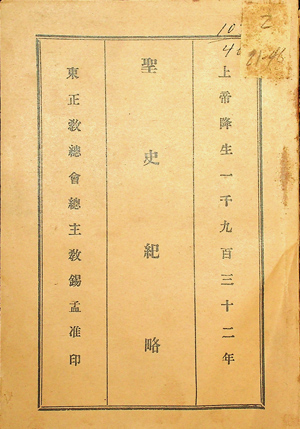 上帝降生一千九百三十二年
聖史紀略
東正教總會總主教錫孟准印
10